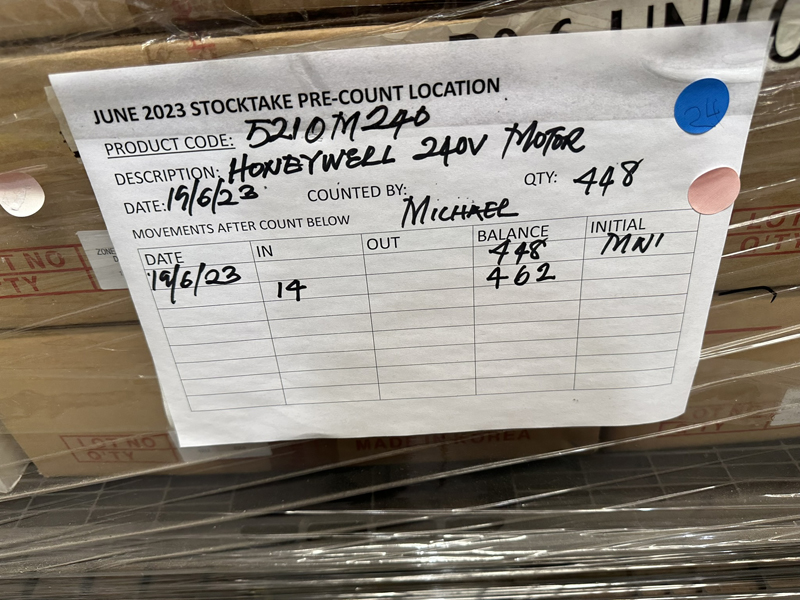 JUNE 2023 STOCKTAKE PRE-COUNT LOCATION
PRODUCT CODE: 5210M240
DESCRIPTION: HONEYWELL 240V MOTOR
DATE: 19/6/23 COUNTED BY: MICHAEL QTY: 448
MOVEMENTS AFTER COUNT BELOW
DATE IN OUT BALANCE INITIAL
448 MNI
19/6/23 14 462
24
LOT NO
Q'TY
LOT NO
Q'TY
LOT NO
Q'TY
MADE IN KOREA